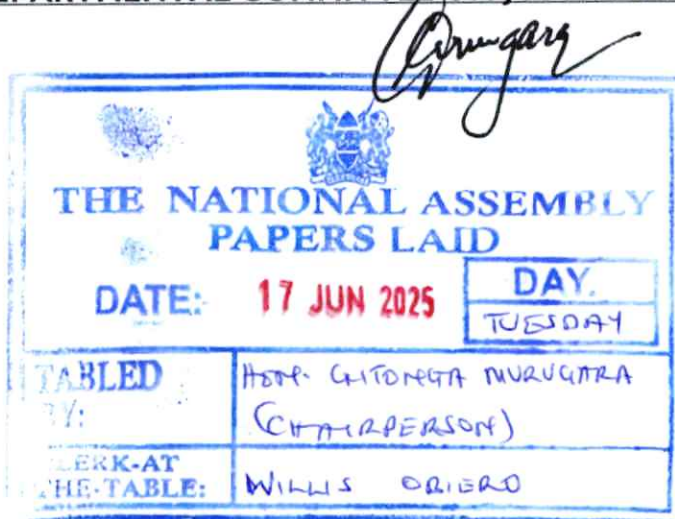 THE NATIONAL ASSEMBLY
PAPERS LAID
DATE: 17 JUN 2025
DAY.
TUESDAY
TABLED BY:
HON. GITONGA MURUGARA
(CHAIRPERSON)
CLERK-AT
THE-TABLE:
WILLIS OBIERO